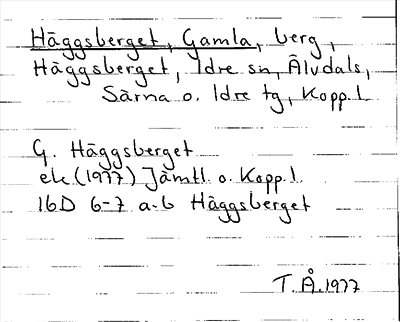 Häggsberget, Gamla, berg,
Häggsberget, Idre sn, Älvdals,
Särna o. Idre tg, Kopp. l.
G. Häggsberget
ek (1977) Jämtl. o. Kopp. l.
16D 6-7 a-b Häggsberget
T. Å. 1977